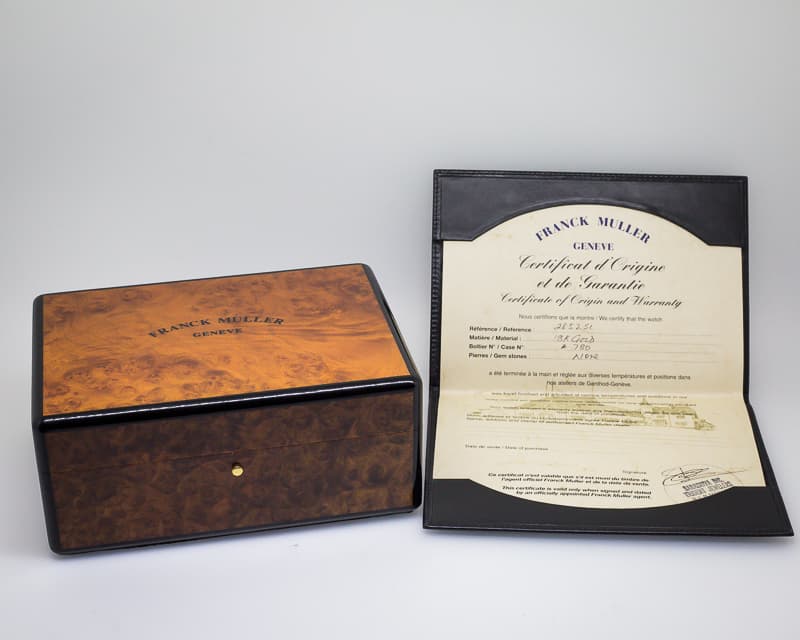 FRANCK MULLER
GENEVE
FRANCK MULLER
GENEVE
Certificat d'Origine
et de Garantie
Certificate of Origin and Warranty
Nous certifions que la montre / We certify that the watch
Référence / Reference
Matière / Material : 18K GOLD
Boîtier N° / Case N° 780
Pierres / Gem stones : NONE
a été terminée à la main et réglée aux diverses températures et positions dans
nos ateliers de Genthod-Genève.
Date de vente / Date of purchase
Signature
Ce certificat n'est valable que s'il est muni du timbre de
l'agent officiel Franck Muller et de la date de vente.
This certificate is valid only when signed and dated
by an officially appointed Franck Muller agent.